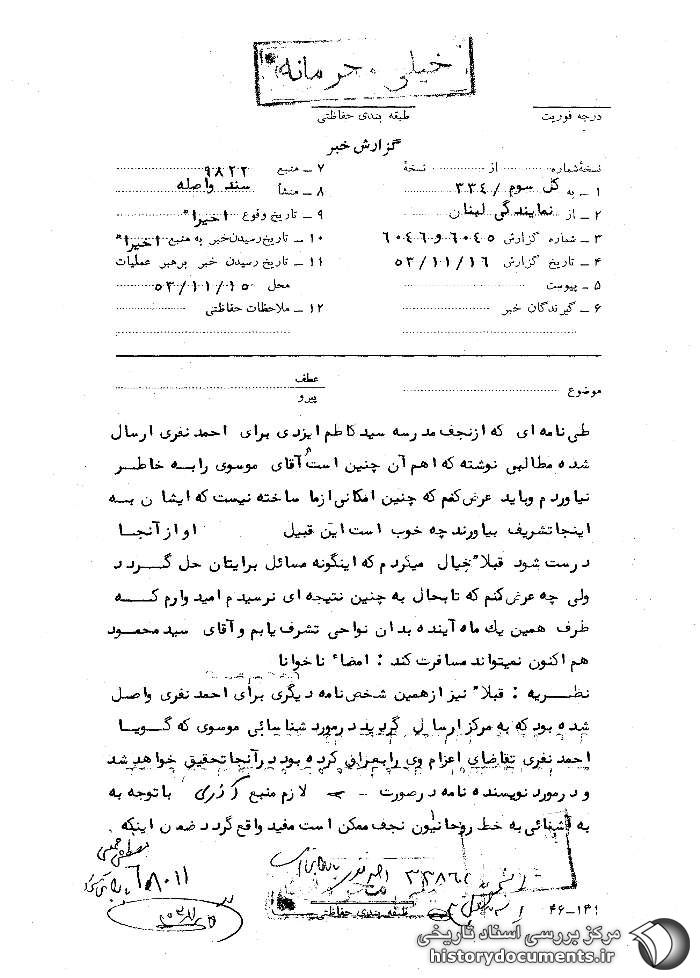 خیلی محرمانه
درجه فوریت
طبقه بندی حفاظتی
گزارش خبر
نسخهٔ شماره از نسخهٔ
۱ ـ به کل سوم / ۳۳۴
۲ ـ از نمایندگی لبنان
۳ ـ شماره گزارش ۶۰۴۵ و ۶۰۴۶
۴ ـ تاریخ گزارش ۵۳/۱۱/۱۶
۵ ـ پیوست
۶ ـ گیرندگان خبر
۷ ـ منبع ۹۸۲۲
۸ ـ منشأ سند واصله
۹ ـ تاریخ وقوع اخیرا"
۱۰ ـ تاریخ رسیدن خبر به منبع اخیرا"
۱۱ ـ تاریخ رسیدن خبر برهبر عملیات
محل ۵۳/۱۱/۱۵
۱۲ ـ ملاحظات حفاظتی
موضوع
عطف
پیرو
طی نامه ای که ازنجف مدرسه سید کاظم ایزدی برای احمد نفری ارسال
شده مطالبی نوشته که اهم آن چنین است آقای موسوی را به خاطر
نیاوردم وباید عرض کنم که چنین امکانی ازما ساخته نیست که ایشان به
اینجا تشریف بیاورند چه خوب است این قبیل او از آنجا
درست شود قبلا" خیال میکردم که اینگونه مسائل برایتان حل گردد
ولی چه عرض کنم که تابحال به چنین نتیجه ای نرسیدم امیدوارم که
ظرف همین یک ماه آینده بدان نواحی تشرف یابم و آقای سید محمود
هم اکنون نمیتواند مسافرت کند : امضاء ناخوانا
نظریه : قبلا" نیز ازهمین شخص نامه دیگری برای احمد نفری واصل
شده بود که به مرکز ارسال گردید درمورد شناسائی موسوی که گویا
احمد نفری تقاضای اعزام وی را بعراق کرده بود درآنجا تحقیق خواهد شد
و درمورد نویسنده نامه درصورت لازم منبع آذری باتوجه به
به آشنائی به خط روحانیون نجف ممکن است مفید واقع گردد ضمن اینکه
۳۳۸۶۱
طبقه بندی حفاظتی
۴۶-۱۴۱
مرکز بررسی اسناد تاریخی
historydocuments.ir